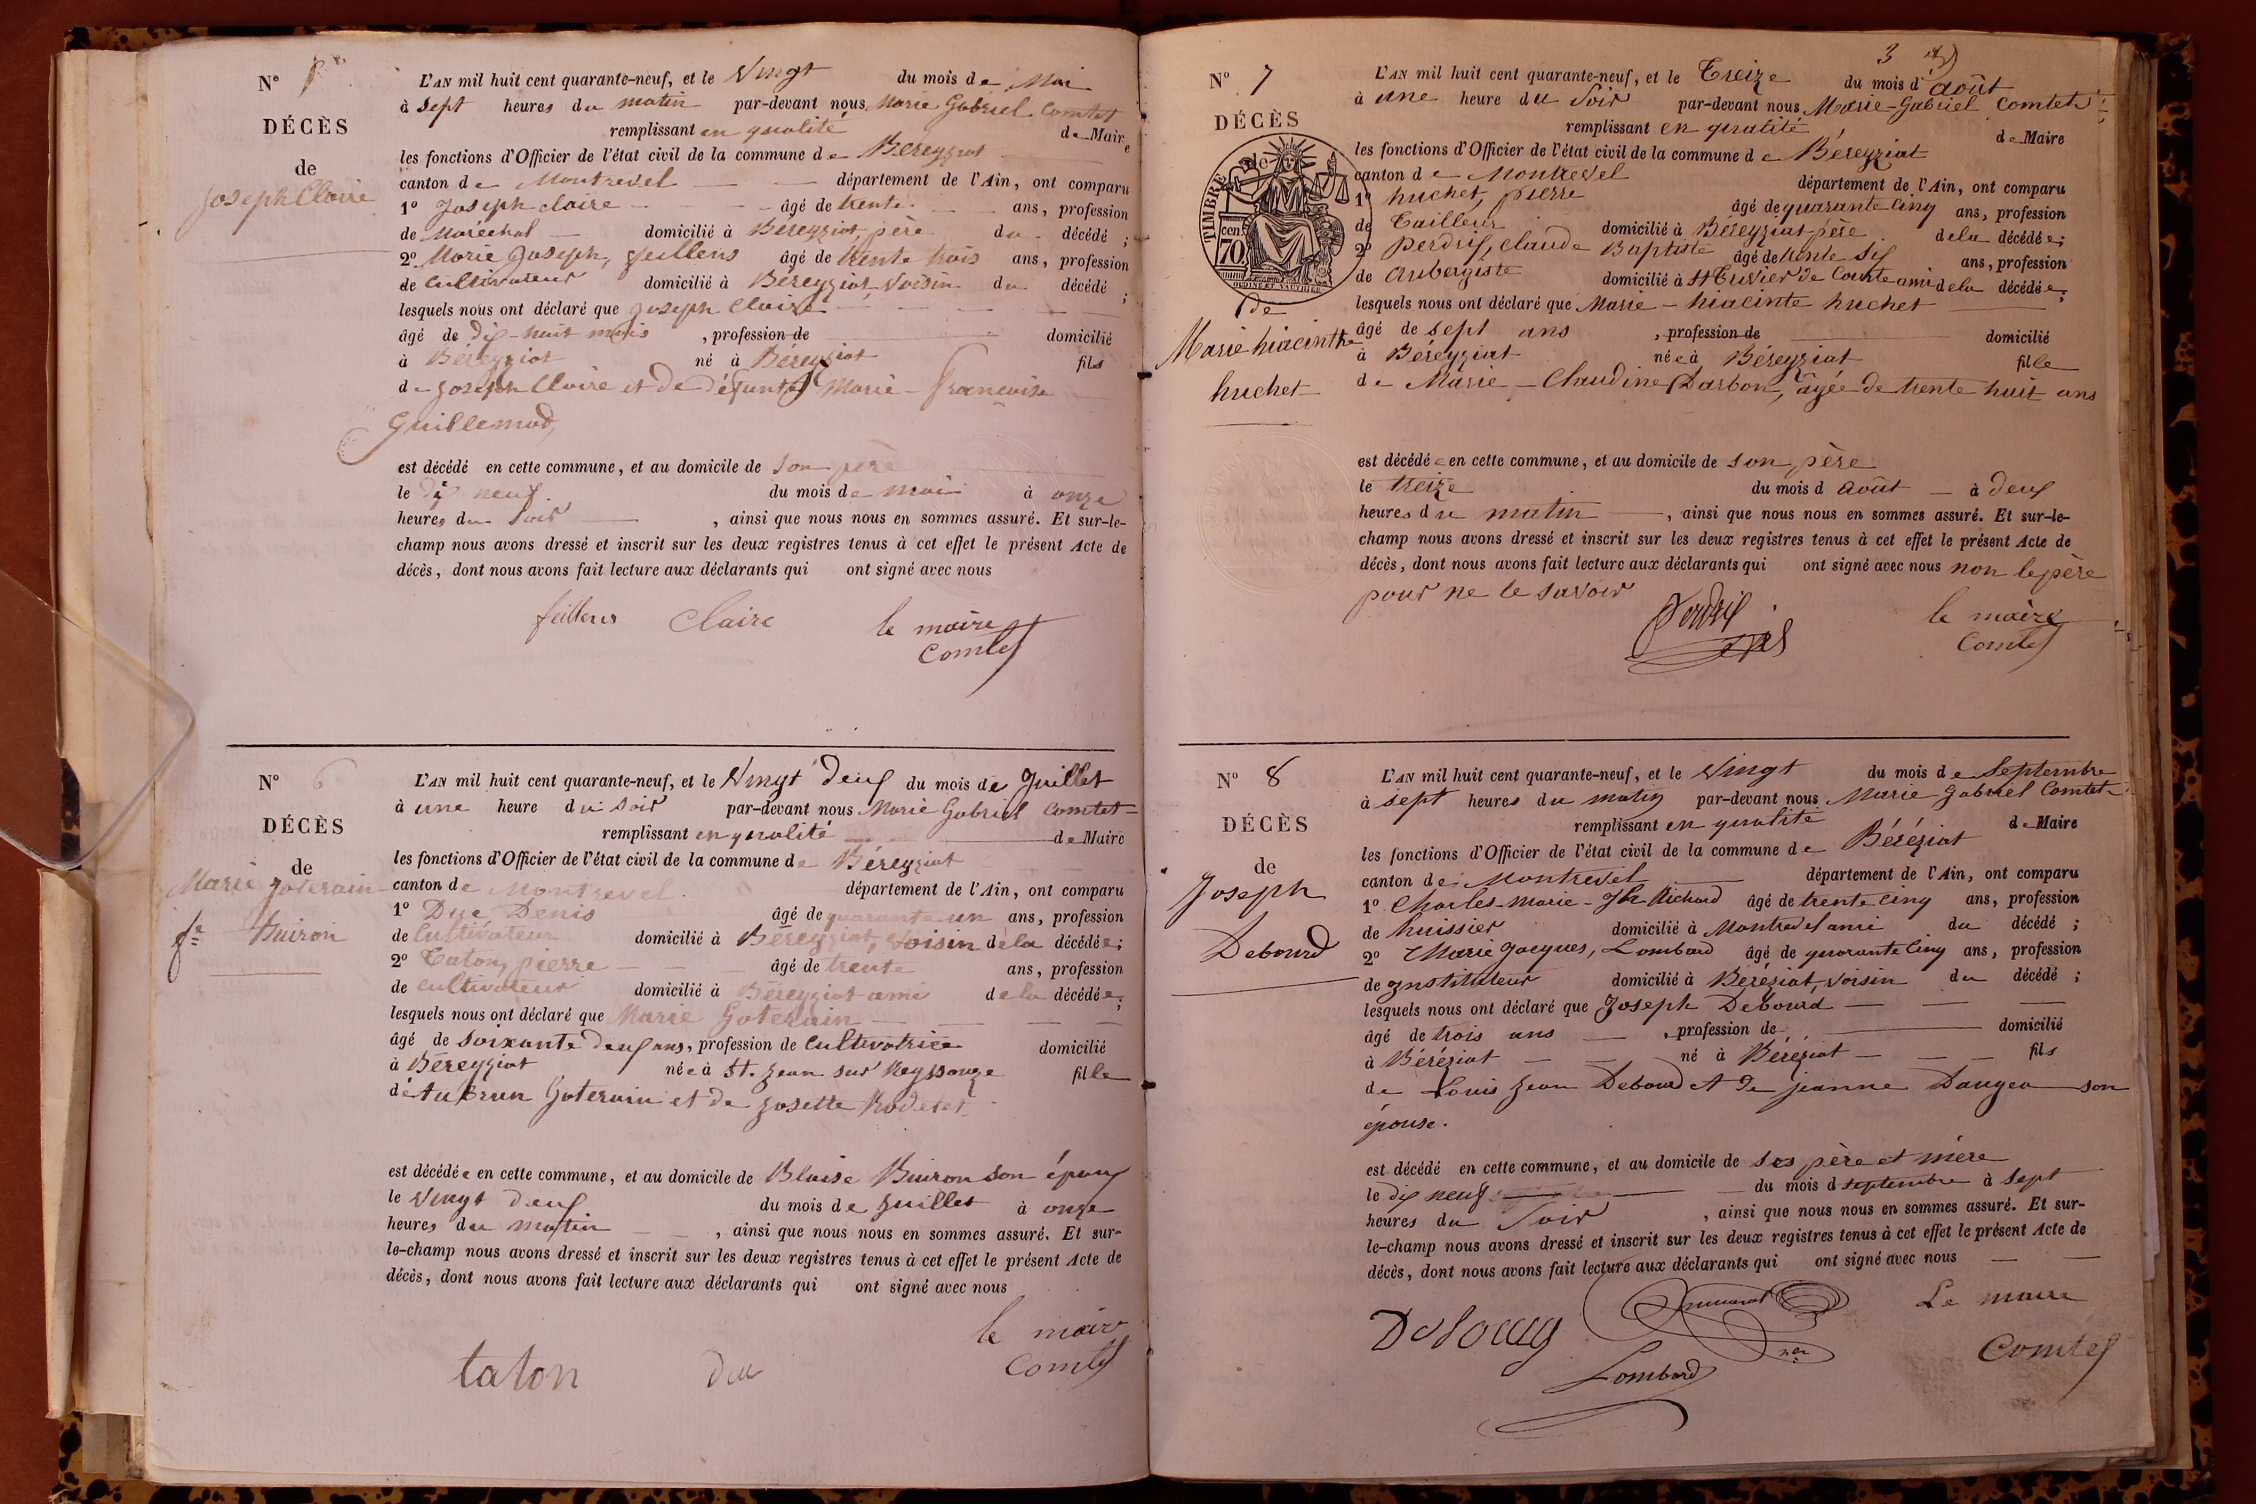 N°
DÉCÈS
de
Joseph Claire
L'AN mil huit cent quarante-neuf, et le Vingt du mois de Mai
à Sept heures du matin par-devant nous Marie Gabriel Comtet
remplissant en qualité de Maire
les fonctions d'Officier de l'état civil de la commune de Béreyziat
canton de Montrevel département de l'Ain, ont comparu
1° Joseph claire âgé de trente ans, profession
de Maréchal domicilié à Béreyziat, père du décédé ;
2° Marie Joseph, feillens âgé de trente trois ans, profession
de Cultivateur domicilié à Béreyziat Voisin du décédé ;
lesquels nous ont déclaré que Joseph Claire
âgé de dix-huit mois , profession de domicilié
à Béreyziat né à Béreyziat fils
de Joseph Claire et de défunte Marie-françoise
Guillemod,
est décédé en cette commune, et au domicile de Son père
le dix neuf du mois de mai à onze
heures du Soir , ainsi que nous nous en sommes assuré. Et sur-le-
champ nous avons dressé et inscrit sur les deux registres tenus à cet effet le présent Acte de
décès, dont nous avons fait lecture aux déclarants qui ont signé avec nous
feillens Claire le maire
Comtet
N° 6
DÉCÈS
de
Marie Goterain
fe Buiron
L'AN mil huit cent quarante-neuf, et le Vingt deux du mois de Juillet
à une heure du soir par-devant nous Marie Gabriel Comtet
remplissant en qualité de Maire
les fonctions d'Officier de l'état civil de la commune de Béreyziat
canton de Montrevel département de l'Ain, ont comparu
1° Duc Denis âgé de quarante-un ans, profession
de Cultivateur domicilié à Béreyziat, Voisin de la décédée;
2° Caton, pierre âgé de trente ans, profession
de cultivateur domicilié à Béreyziat ami de la décédée;
lesquels nous ont déclaré que Marie Goterain
âgé de soixante deux ans, profession de Cultivatrice domicilié
à Béreyziat née à St. Jean sur Reyssouze fille
de Goterain et de Josette
est décédée en cette commune, et au domicile de Blaise Buiron son époux
le Vingt deux du mois de Juillet à onze
heures du matin , ainsi que nous nous en sommes assuré. Et sur-
le-champ nous avons dressé et inscrit sur les deux registres tenus à cet effet le présent Acte de
décès, dont nous avons fait lecture aux déclarants qui ont signé avec nous
le maire
caton Duc Comtet
3
N° 7
DÉCÈS
TIMBRE
70 cen
de
Marie hiacinthe
huchet
L'AN mil huit cent quarante-neuf, et le Treize du mois d'août
à une heure du Soir par-devant nous Marie-Gabriel Comtet
remplissant en qualité de Maire
les fonctions d'Officier de l'état civil de la commune de Béreyziat
canton de Montrevel département de l'Ain, ont comparu
1° huchet, pierre âgé de quarante cinq ans, profession
de Tailleur domicilié à Béreyziat père de la décédée;
2° Perdrix, claude Baptiste âgé de trente six ans, profession
de aubergiste domicilié à St Trivier de Courte ami de la décédée;
lesquels nous ont déclaré que Marie-hiacinte huchet
âgé de sept ans , profession de domicilié
à Béreyziat née à Béreyziat fille
de Marie-Claudine Darbon, âgée de trente huit ans
est décédée en cette commune, et au domicile de son père
le treize du mois d août à deux
heures du matin , ainsi que nous nous en sommes assuré. Et sur-le-
champ nous avons dressé et inscrit sur les deux registres tenus à cet effet le présent Acte de
décès, dont nous avons fait lecture aux déclarants qui ont signé avec nous non le père
pour ne le savoir
Perdrix le maire
Comtet
N° 8
DÉCÈS
de
Joseph
Debourd
L'AN mil huit cent quarante-neuf, et le Vingt du mois de Septembre
à sept heures du matin par-devant nous Marie Gabriel Comtet
remplissant en qualité de Maire
les fonctions d'Officier de l'état civil de la commune de Béréziat
canton de Montrevel département de l'Ain, ont comparu
1° Charles-Marie-Jh Richard âgé de trente cinq ans, profession
de huissier domicilié à Montrevel ami du décédé ;
2° Marie Jacques, Lombard âgé de quarante cinq ans, profession
de Instituteur domicilié à Béréziat, Voisin du décédé ;
lesquels nous ont déclaré que Joseph Debourd
âgé de trois ans , profession de domicilié
à Béréziat né à Béréziat fils
de Louis Jean Debourd et de jeanne Daujea son
épouse.
est décédé en cette commune, et au domicile de ses père et mère
le dix neuf du mois d septembre à sept
heures du Soir , ainsi que nous nous en sommes assuré. Et sur-
le-champ nous avons dressé et inscrit sur les deux registres tenus à cet effet le présent Acte de
décès, dont nous avons fait lecture aux déclarants qui ont signé avec nous
Le maire
Lombard Comtet